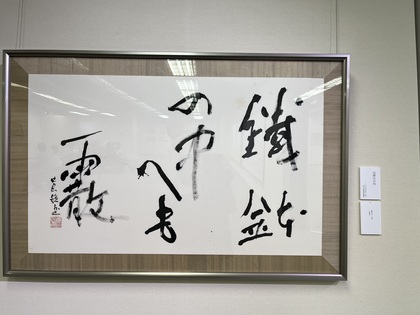 鐵鉢
の中
へも
霰